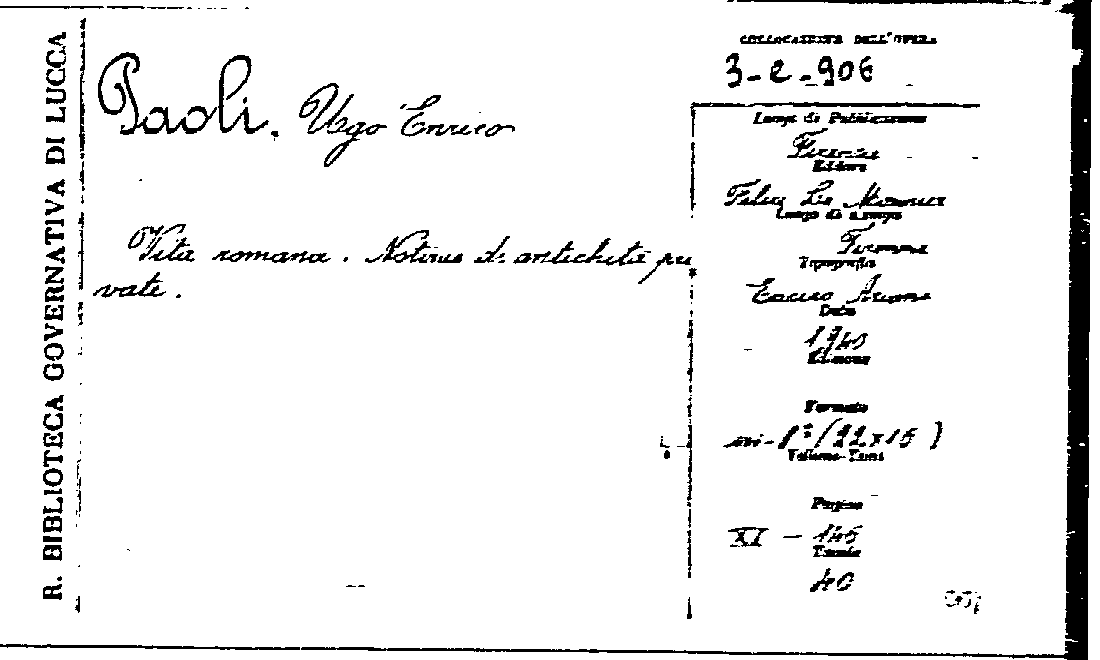 R. BIBLIOTECA GOVERNATIVA DI LUCCA
COLLOCAZIONE DELL'OPERA
3-e-906
Paoli, Ugo Enrico
Vita romana. Notizie di antichità pri
vate.
Luogo di Pubblicazione
Firenze
Editore
Felice Le Monnier
Luogo di stampa
Firenze
Tipografia
Enrico Ariani
Data
1940
Edizione
Formato
in-8° (22x15)
Volume-Tomi
Pagine
XI - 145
Tavole
40